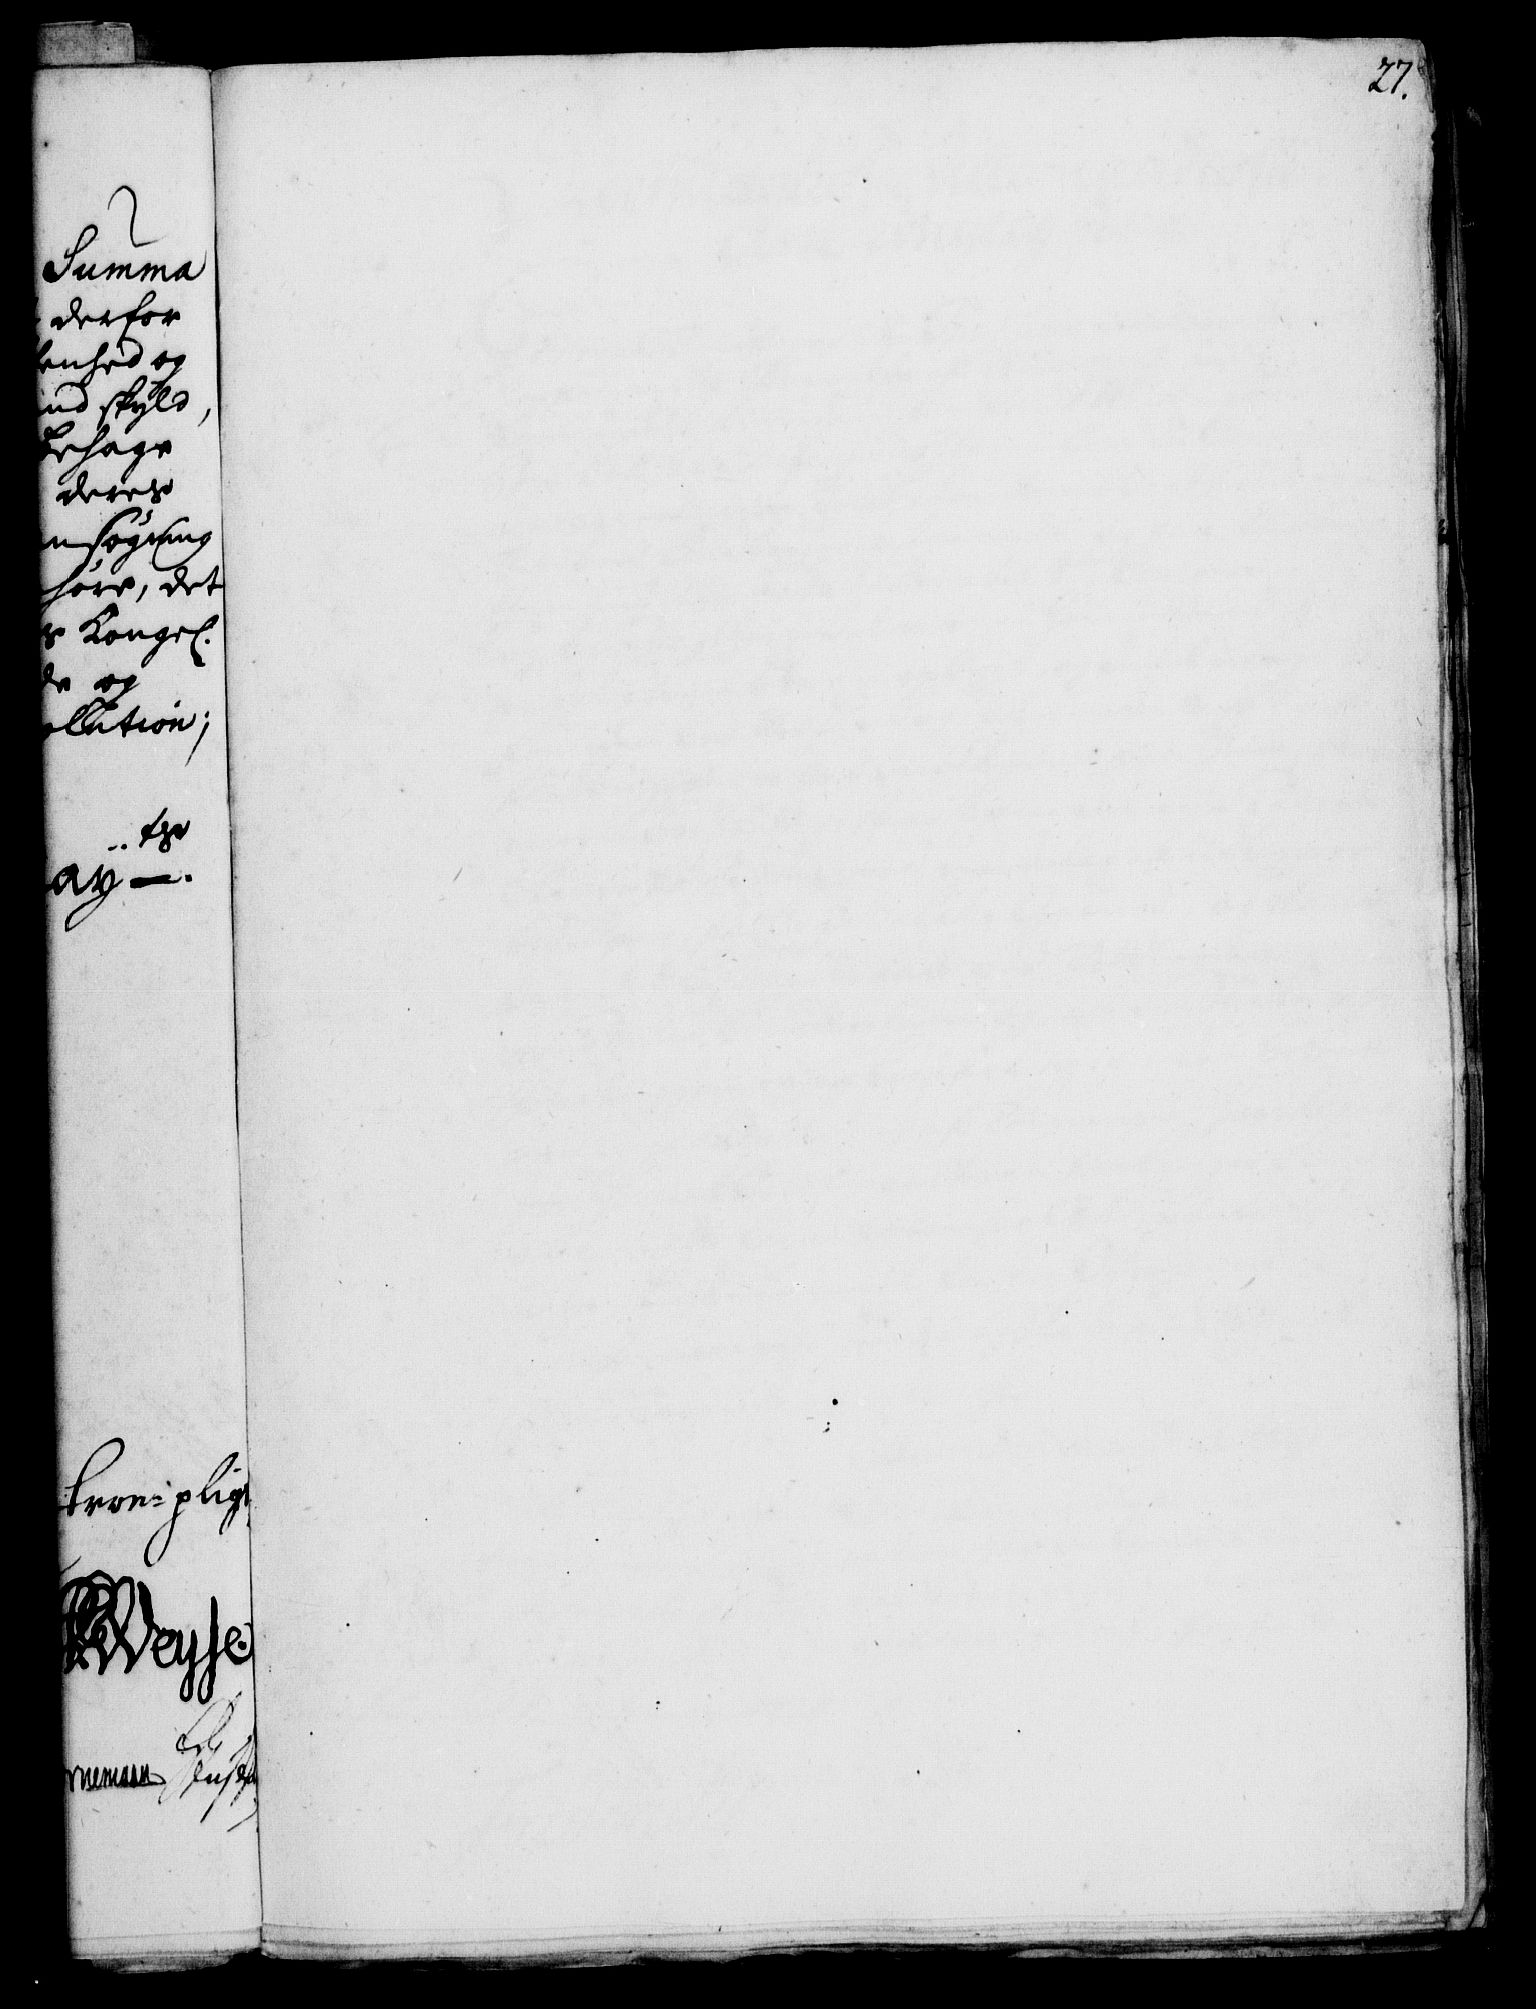 27.
Summa
derfor
enhed og
nd skyld,
behage
deres
nsøgning
høre, det
s Kongel.
de og
olution;
ts
ay —.
troe=pligt
Weyse
nemann